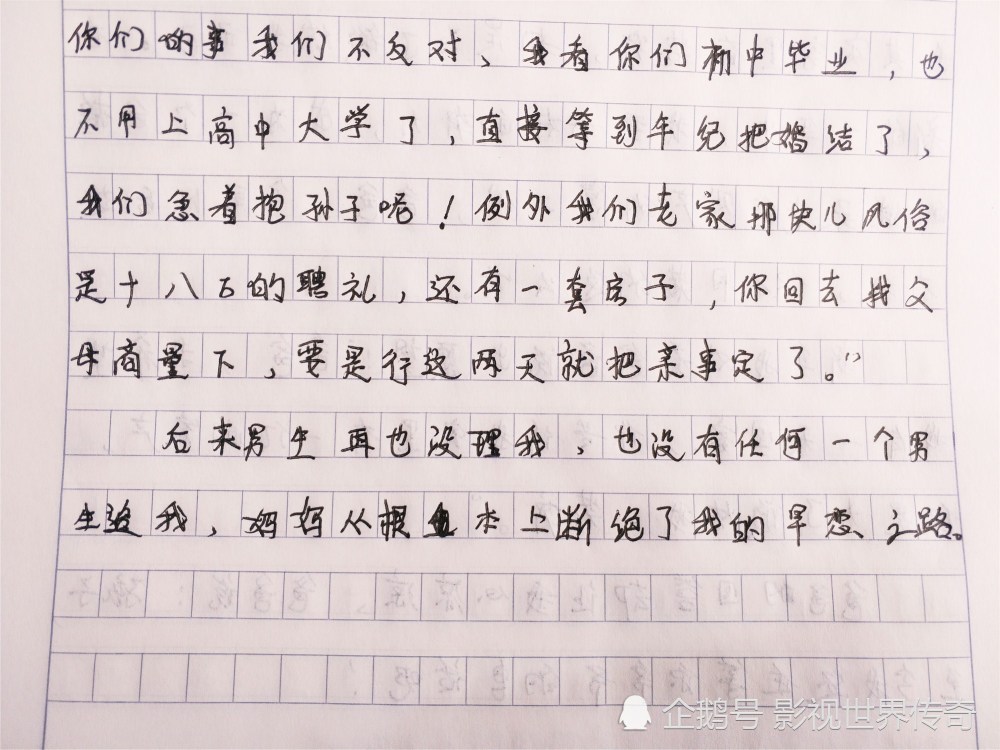 你们的事我们不反对、我看你们初中毕业，也
不用上高中大学了，直接等到年纪把婚结了，
我们急着抱孙子呢！例外我们老家那块儿风俗
是十八万的聘礼，还有一套房子，你回去我父
母商量下，要是行这两天就把亲事定了。”
后来男生再也没理我、也没有任何一个男
生追我，妈妈从根本上断绝了我的早恋之路。
企鹅号 影视世界传奇